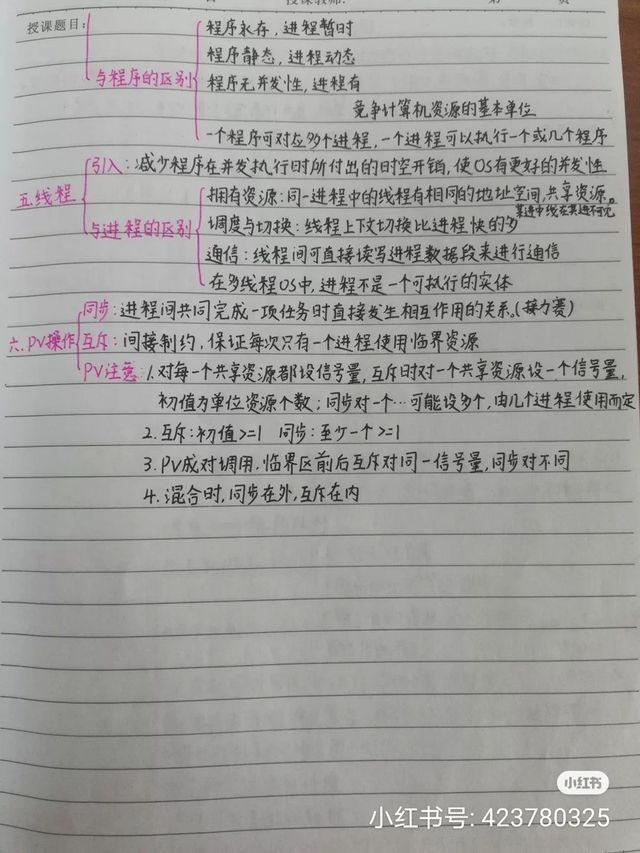 授课题目:
程序永存，进程暂时
程序静态，进程动态
与程序的区别 程序无并发性，进程有
竞争计算机资源的基本单位
一个程序可对应多个进程，一个进程可以执行一个或几个程序
引入:减少程序在并发执行时所付出的时空开销，使OS有更好的并发性
五.线程 拥有资源:同一进程中的线程有相同的地址空间，共享资源。
与进程的区别 调度与切换:线程上下文切换比进程快的多
通信:线程间可直接读写进程数据段来进行通信
在多线程OS中，进程不是一个可执行的实体
同步:进程间共同完成一项任务时直接发生相互作用的关系。(接力赛)
六.PV操作 互斥:间接制约，保证每次只有一个进程使用临界资源
PV注意:1.对每一个共享资源都设信号量，互斥时对一个共享资源设一个信号量，
初值为单位资源个数;同步对一个…可能设多个，由几个进程使用而定
2.互斥:初值>=1 同步:至少一个>=1
3.PV成对调用，临界区前后互斥对同一信号量，同步对不同
4.混合时，同步在外，互斥在内
小红书
小红书号: 423780325